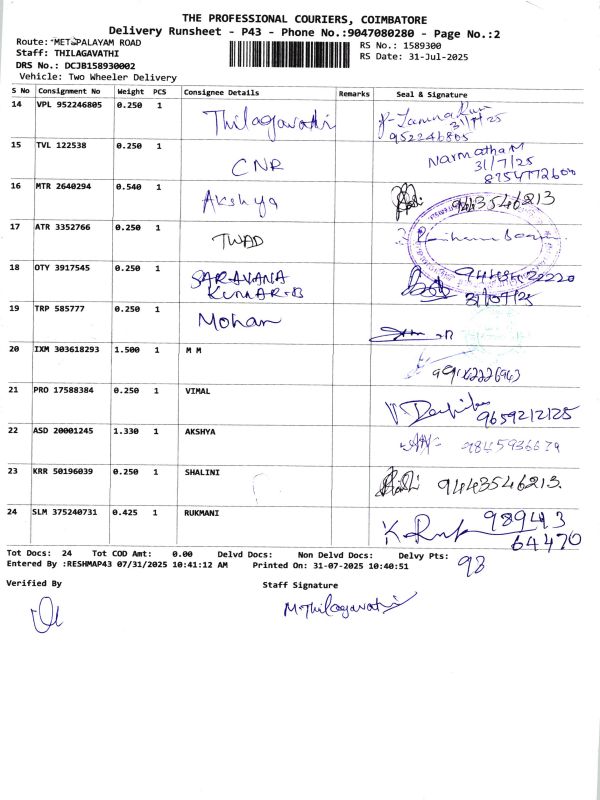 THE PROFESSIONAL COURIERS, COIMBATORE
Delivery Runsheet - P43 - Phone No.:9047080280 - Page No.:2
Route: METUPALAYAM ROAD
RS No.: 1589300
Staff: THILAGAVATHI
RS Date: 31-Jul-2025
DRS No.: DCJB158930002
Vehicle: Two Wheeler Delivery
S No Consignment No Weight PCS Consignee Details Remarks Seal & Signature
14 VPL 952246805 0.250 1 Thilagavathi
31/7/25
952246805
15 TVL 122538 0.250 1 CNR Narmatha M
31/7/25
16 MTR 2640294 0.540 1 Akshya 9443546213
17 ATR 3352766 0.250 1 TWAD
18 OTY 3917545 0.250 1 SARAVANA
KUMAR.B
31/07/25
19 TRP 585777 0.250 1 Mohan
20 IXM 303618293 1.500 1 M M
21 PRO 17588384 0.250 1 VIMAL 9659212125
22 ASD 20001245 1.330 1 AKSHYA
23 KRR 50196039 0.250 1 SHALINI 9443546213.
24 SLM 375240731 0.425 1 RUKMANI 989443
64470
Tot Docs: 24 Tot COD Amt: 0.00 Delvd Docs: Non Delvd Docs: Delvy Pts: 98
Entered By :RESHMAP43 07/31/2025 10:41:12 AM Printed On: 31-07-2025 10:40:51
Verified By Staff Signature
M.Thilagavathi